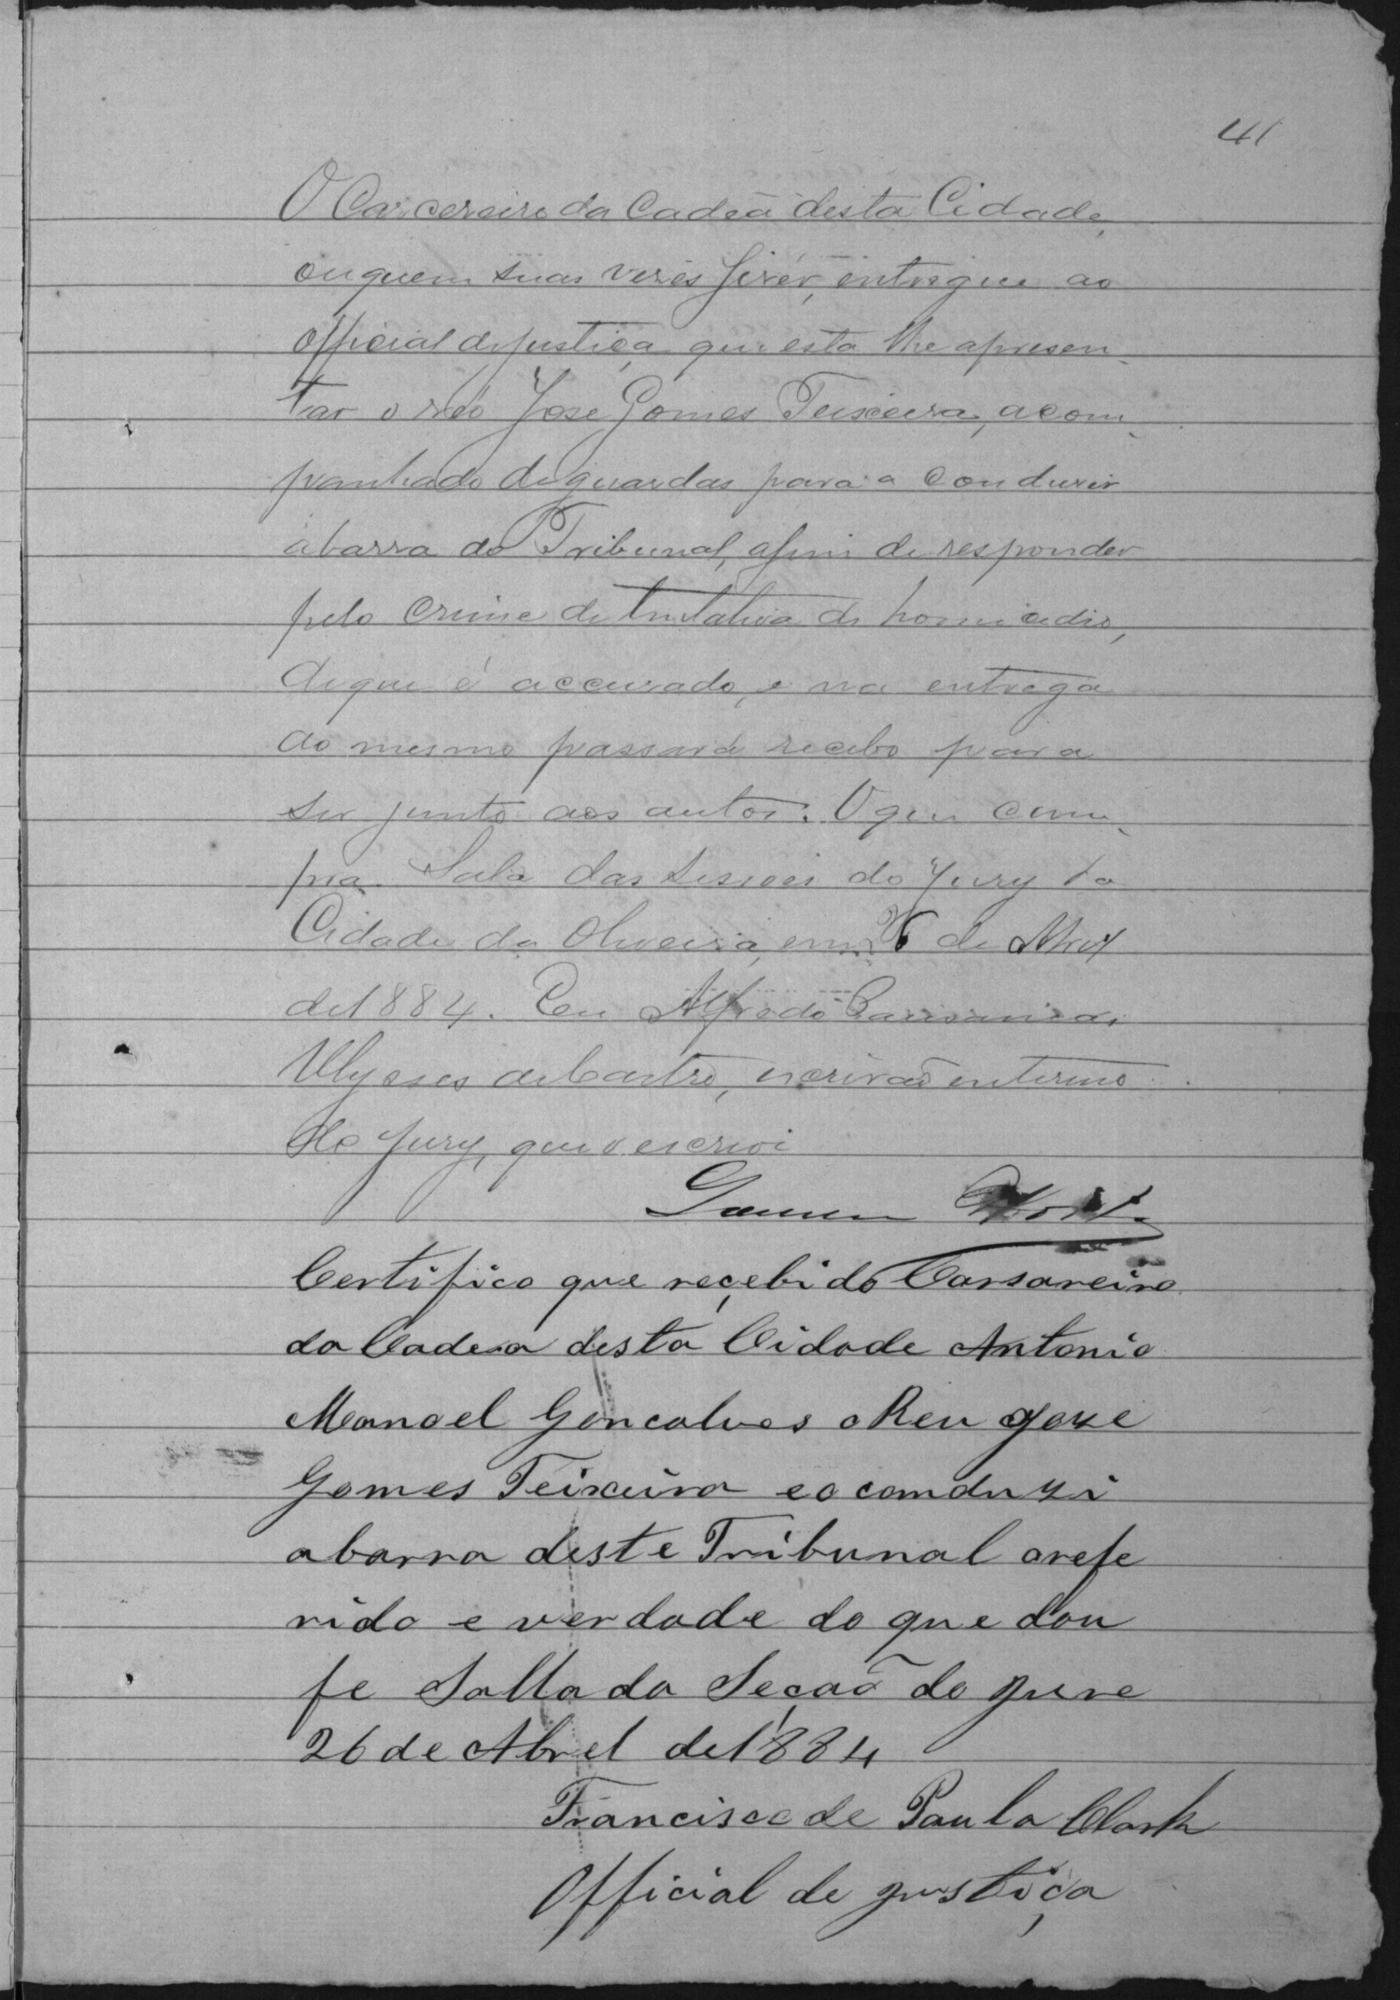 41
O Carcereiro da Cadeia desta Cidade,
ou quem suas veses fizer, entregue ao
official de justiça que esta lhe apresen-
tar o réo José Gomes Teixeira, acom-
panhado de guardas para o condusir
á barra do Tribunal, afim de responder
pelo crime de tentativa de homicidio,
de que é accusado, e na entrega
do mesmo passará recibo para
ser junto aos autos. O que cum-
pra. Sala das sessões do Jury da
Cidade da Oliveira, em 26 de Abril
de 1884. Eu Alfredo
Ulysses de Castro, escrivão interino
do Jury, que o escrevi
Certifico que reçebi do Carsareiro
da Cadeia desta Cidade Antonio
Manoel Goncalves o Reu Joze
Gomes Teixeira e o comduzi
a barra deste Tribunal o refe
rido e verdade do que dou
fe Salla da Seçaõ do jure
26 de Abrel de 1884
Francisco de Paula Clark
Official de justiça